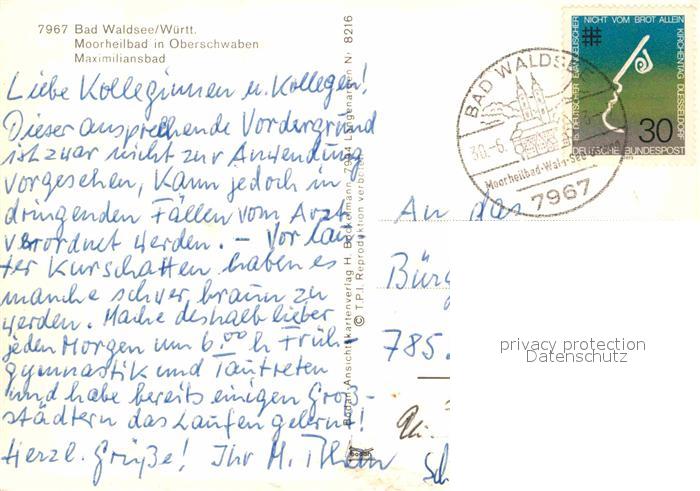 7967 Bad Waldsee/Württ.
Moorheilbad in Oberschwaben
Maximiliansbad
Liebe Kolleginnen u. Kollegen!
Dieser ansprechende Vordergrund
ist zwar nicht zur Anwendung
vorgesehen, kann jedoch in
dringenden Fällen vom Arzt
verordnet werden. – Vor lau-
ter Kurschatten haben es
manche schwer, braun zu
werden. Mache deshalb lieber
jeden Morgen um 6.00 h Früh-
gymnastik und Tautreten
und habe bereits einigen Groß-
städtern das Laufen gelernt!
Herzl. Grüße! Ihr M.
Bodan-Ansichtskartenverlag H. Bockelmann, 7994 Langenargen N. 8216
© T.P.I. Reproduktion verboten
bodan
BAD WALDSEE
30.-6.
Moorheilbad-Wald-See
7967
15. DEUTSCHER EVANGELISCHER KIRCHENTAG DUESSELDORF
NICHT VOM BROT ALLEIN
30
DEUTSCHE BUNDESPOST
An das
Bürg
785
privacy protection
Datenschutz